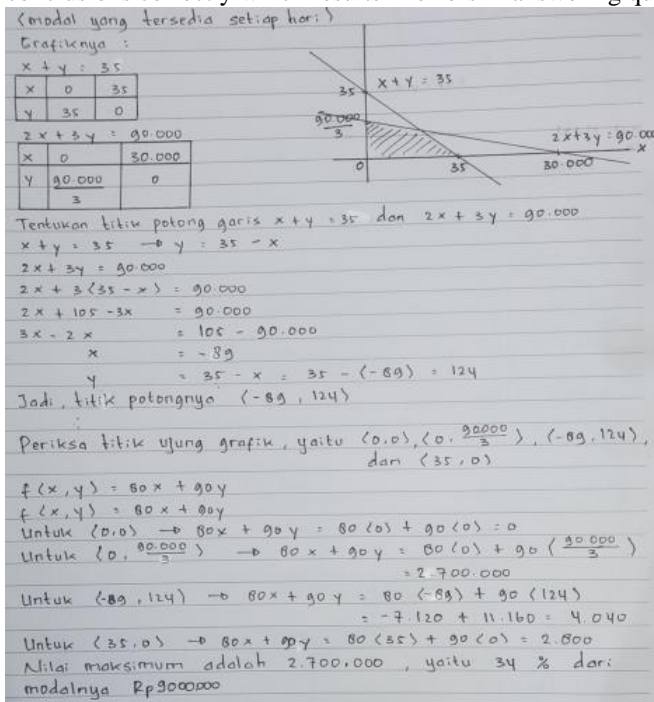 (modal yang tersedia setiap hari)
Grafiknya :
x + y = 35
x 0 35
y 35 0
2x + 3y = 90.000
x 0 30.000
y 90.000/3 0
35
x + y = 35
90.000/3
2x+3y = 90.00
x
0
35
30.000
Tentukan titik potong garis x + y = 35 dan 2x + 3y = 90.000
x + y = 35 → y = 35 - x
2x + 3y = 90.000
2x + 3(35 - x) = 90.000
2x + 105 - 3x = 90.000
3x - 2x = 105 - 90.000
x = -89
y = 35 - x = 35 - (-89) = 124
Jadi, titik potongnya (-89, 124)
:
Periksa titik ujung grafik, yaitu (0,0), (0, 90000/3), (-89, 124),
dan (35, 0)
f(x,y) = 80x + 90y
f(x,y) = 80x + 90y
Untuk (0,0) → 80x + 90y = 80(0) + 90(0) = 0
Untuk (0, 90.000/3) → 80x + 90y = 80(0) + 90(90.000/3)
= 2.700.000
Untuk (-89, 124) → 80x + 90y = 80(-89) + 90(124)
= -7.120 + 11.160 = 4.040
Untuk (35,0) → 80x + 90y = 80(35) + 90(0) = 2.800
Nilai maksimum adalah 2.700.000, yaitu 34 % dari
modalnya Rp9000000